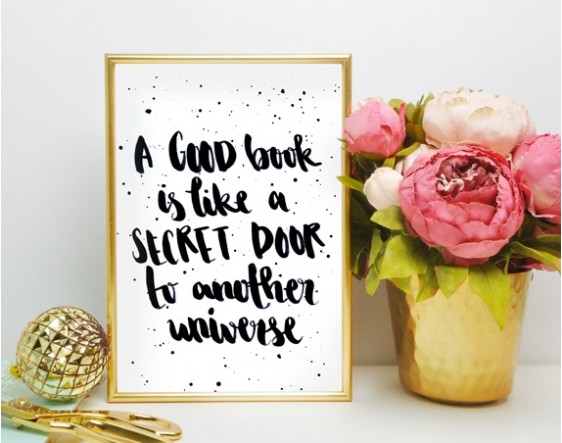 A GOOD book
is like a
SECRET DOOR
to another
universe